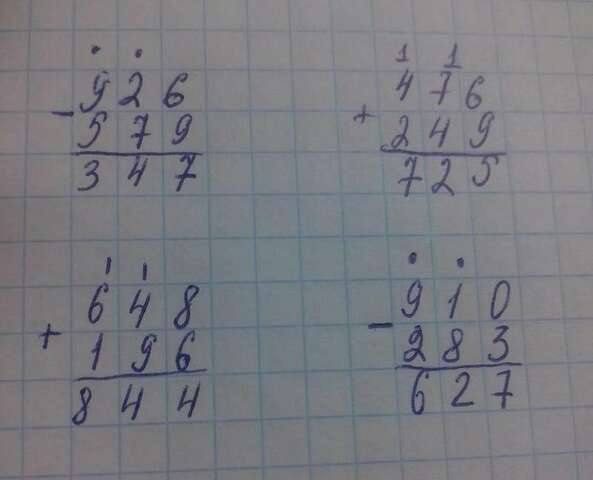 . .
926
- 579
347
1 1
476
+ 249
725
1 1
648
+ 196
844
. .
910
- 283
627